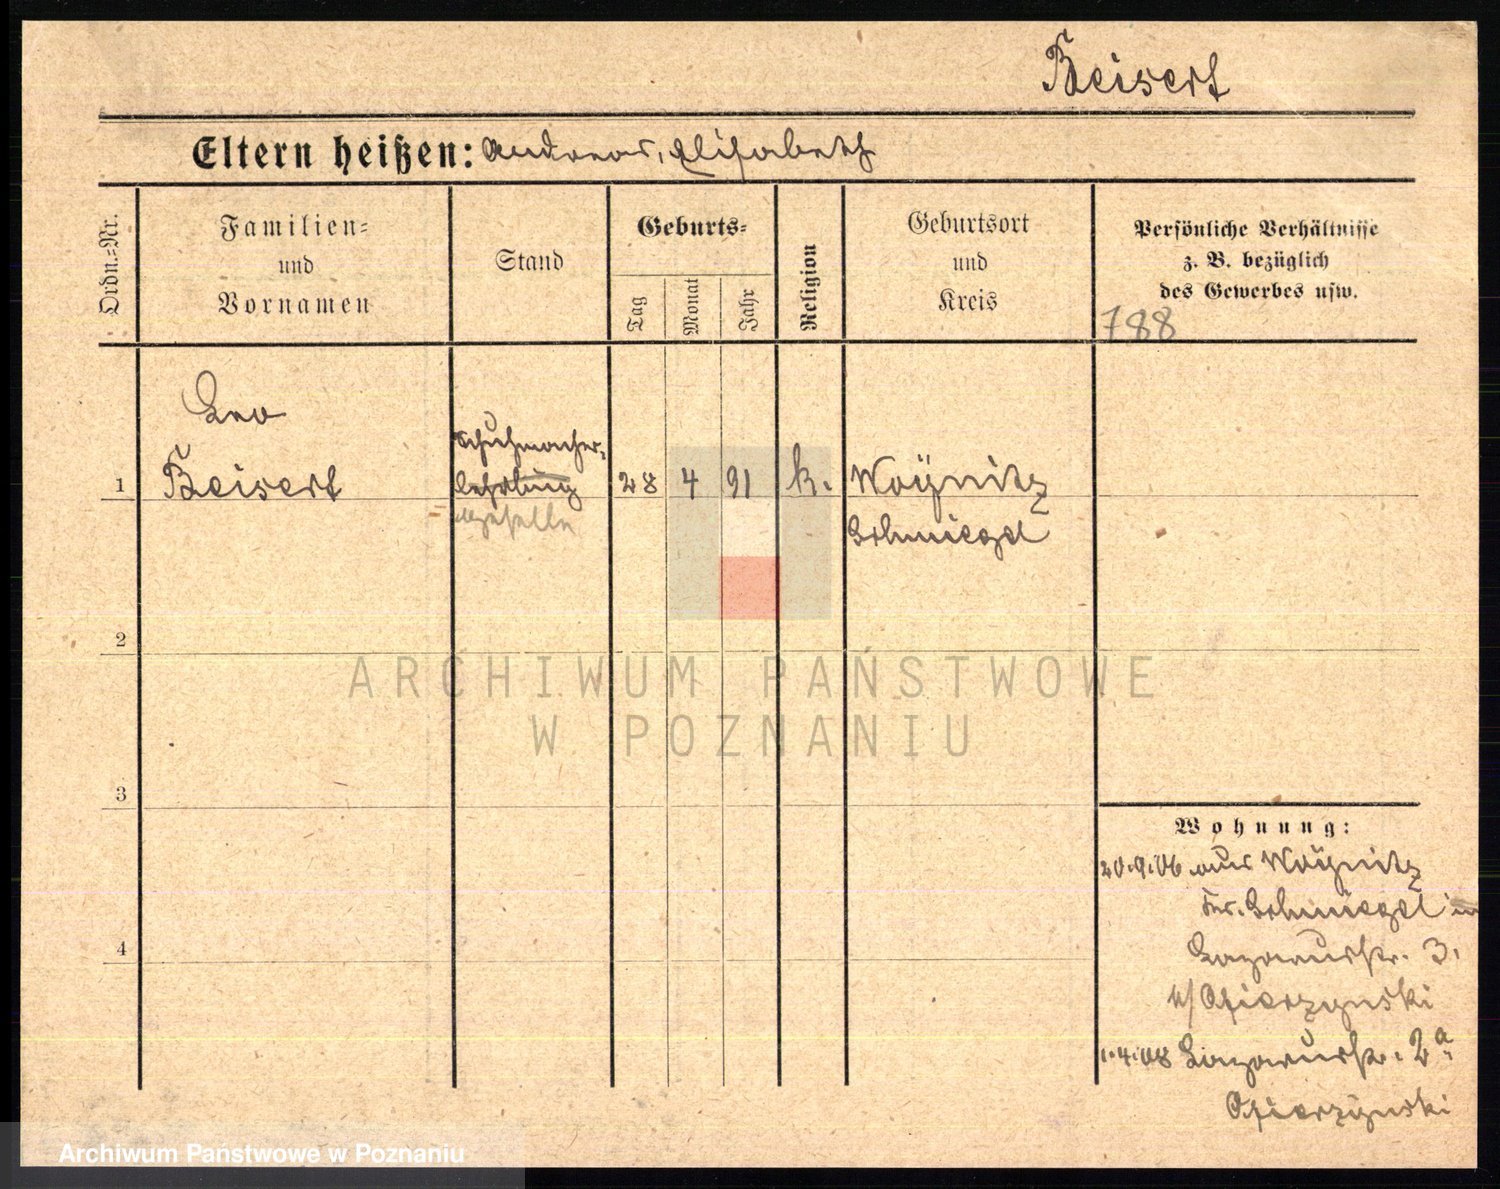 Beisert
Eltern heißen: Andreas, Elisabeth
Ordn.-Nr.
Familien-
und
Vornamen
Stand
Geburts-
Tag
Monat
Jahr
Religion
Geburtsort
und
Kreis
Persönliche Verhältnisse
z. B. bezüglich
des Gewerbes usw.
788
Leo
1 Beisert
Schuhmacher-
lehrling
geselle
28 4 91 k. Woynitz
Schmiegel
2
ARCHIWUM PAŃSTWOWE
W POZNANIU
3
Wohnung:
20.9.06 aus Woynitz
Kr. Schmiegel in
4
Lazarusstr. 3.
b/
1.4.08 Lazarusstr. 2a
Archiwum Państwowe w Poznaniu